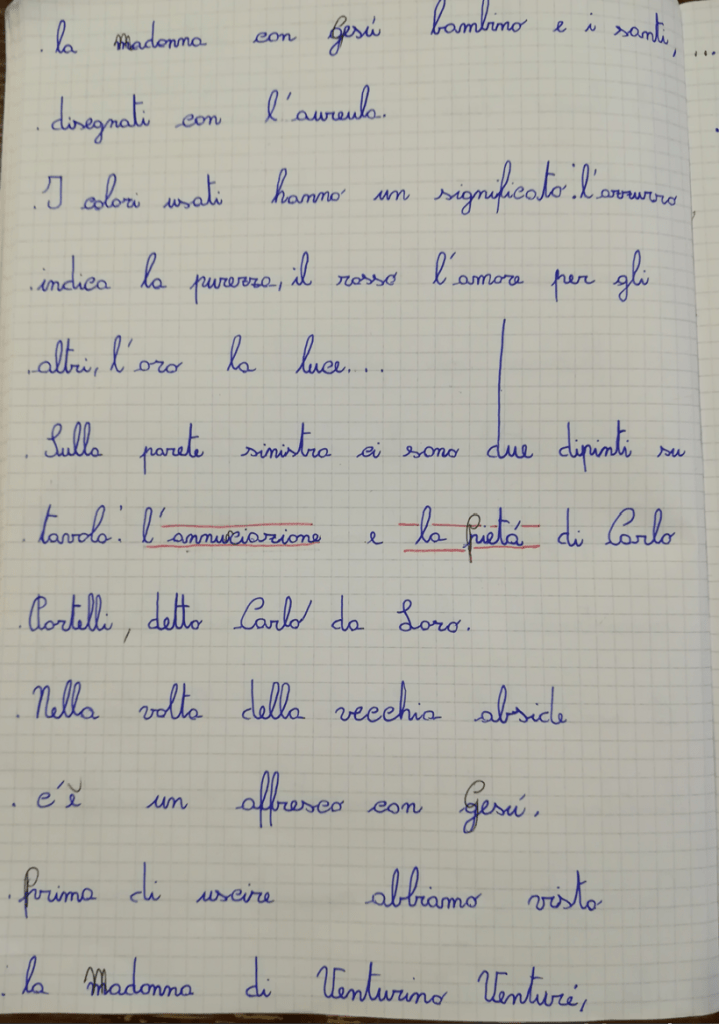 la madonna con Gesú bambino e i santi, ...
disegnati con l'aureula.
I colori usati hanno un significato: l'azzurro
indica la purezza, il rosso l'amore per gli
altri, l'oro la luce...
Sulla parete sinistra ci sono due dipinti su
tavola: l'annunciazione e la pietá di Carlo
Portelli, detto Carlo da Loro.
Nella volta della vecchia abside
c'è un affresco con Gesú.
Prima di uscire abbiamo visto
la Madonna di Venturino Venturi,